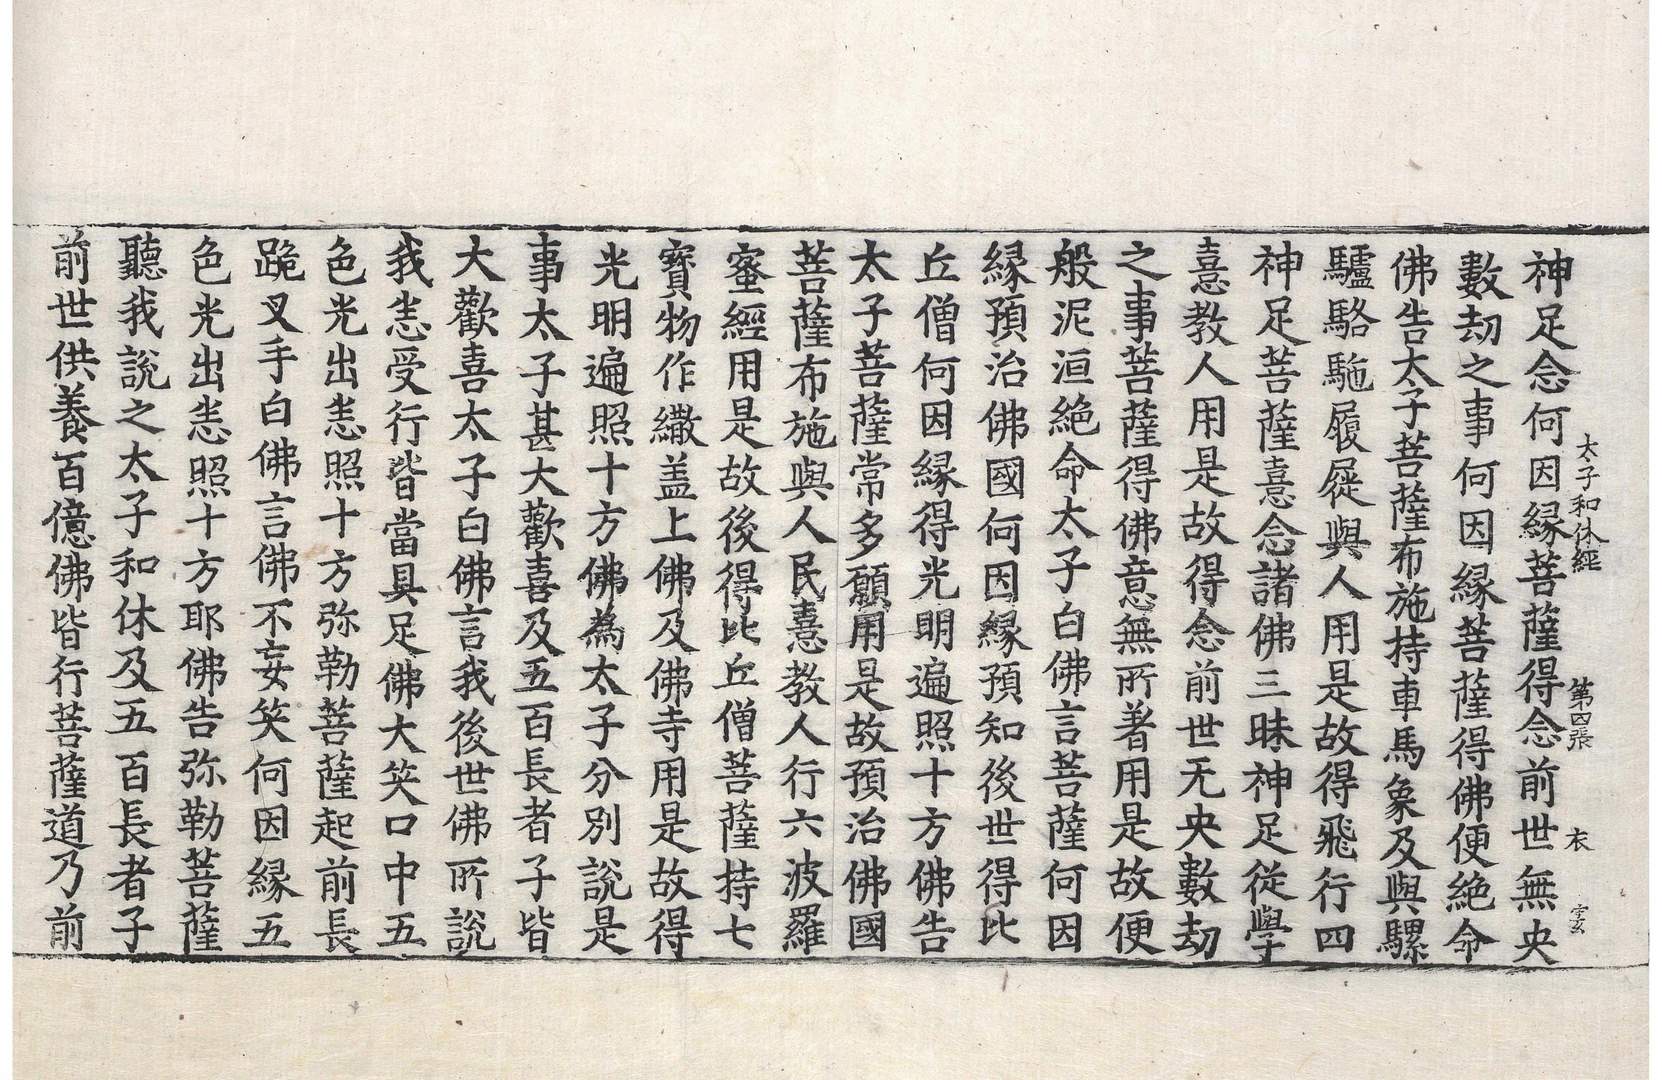 太子和休經　第四張　衣　玄
神足念何因縁菩薩得念前世無央
數劫之事何因縁菩薩得佛便絶命
佛告太子菩薩布施持車馬象及與騾
驢駱駞履屣與人用是故得飛行四
神足菩薩憙念諸佛三昧神足從學
憙教人用是故得念前世无央數劫
之事菩薩得佛意無所著用是故便
般泥洹絶命太子白佛言菩薩何因
縁預治佛國何因縁預知後世得比
丘僧何因縁得光明遍照十方佛告
太子菩薩常多願用是故預治佛國
菩薩布施與人民憙教人行六波羅
蜜經用是故後得比丘僧菩薩持七
寶物作繖盖上佛及佛寺用是故得
光明遍照十方佛為太子分別説是
事太子甚大歡喜及五百長者子皆
大歡喜太子白佛言我後世佛所説
我恙受行皆當具足佛大笑口中五
色光出恙照十方弥勒菩薩起前長
跪叉手白佛言佛不妄笑何因縁五
色光出恙照十方耶佛告弥勒菩薩
聽我説之太子和休及五百長者子
前世供養百億佛皆行菩薩道乃前